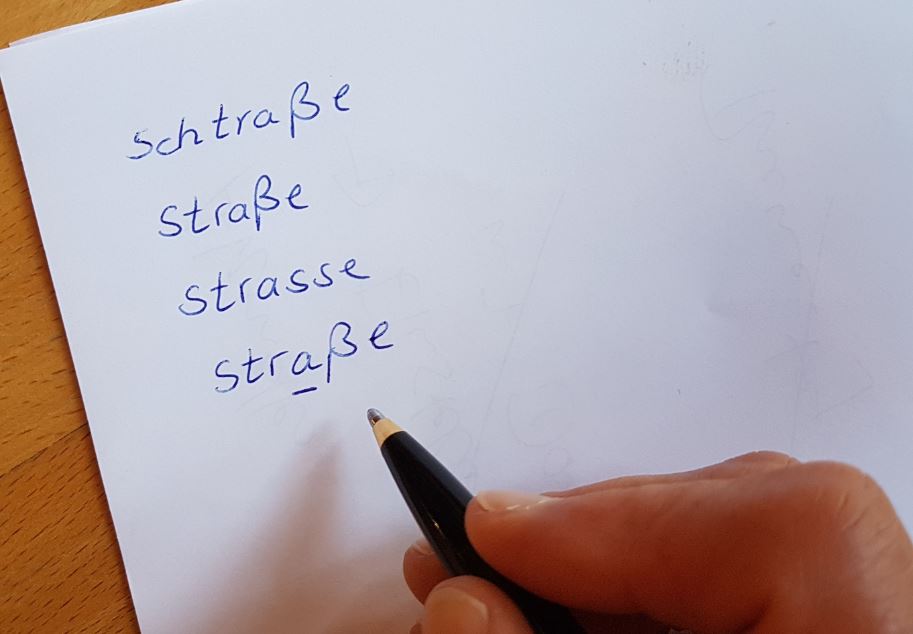 Schtraße
Straße
Strasse
Straße